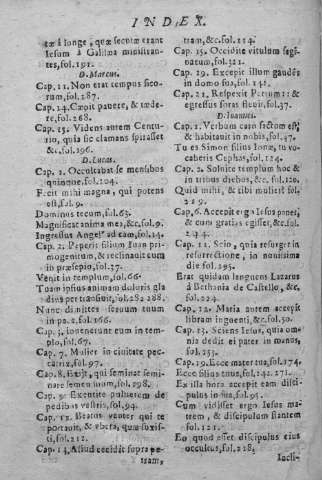 INDEX.
tæ à longe, quæ secutæ erant
Iesum à Galilæa ministrantes, fol.191.
D. Marcus.
Cap. 11. Non erat tempus ficorum, fol.287.
Cap. 14. Cæpit pavere, & tædere, fol.268.
Cap. 15. Videns autem Centurio, quia sic clamans spirasset
&c. fol.296.
D. Lucas.
Cap. 1. Occultabat se mensibus
quinque, fol.204.
Fecit mihi magna, qui potens
est, fol.9.
Dominus tecum, fol.63.
Magnificat anima mea, &c. fol.9.
Ingressus Angelus ad eam, fol.14.
Cap. 2. Peperit filium suum primogenitum, & reclinauit eum
in præsepio, fol.37.
Venit in templum, fol.66.
Tuam ipsius animam doloris gladius pertransiuit, fol.282.288.
Nunc dimittes seruum tuum
in pa.2. fol.266.
Cap. 3. inuenerunt eum in templo, fol.67.
Cap. 7. Mulier in ciuitate peccatrix, fol.97.
Cap. 8. Exijt, qui seminat seminare semen suum, fol.298.
Cap. 9. Excutite puluerem de
pedibus vestris, fol.94.
Cap. 11. Beatus venter qui te
portauit, & vbera, quæ suxisti, fol.212.
Cap. 14. Ascende supra
tram,
tram, &c. fol.124.
Cap. 15. Occidite vitulum saginatum, fol.321.
Cap. 19. Excepit illum gaudens
in domo sua, fol.141.
Cap. 22. Respexit Petrum: &
egressus foras fleuit, fol.37.
D. Ioannis.
Cap. 1. Verbum caro factum est,
& habitauit in nobis, fol.47.
Tu es Simon filius Ionæ, tu vocaberis Cephas, fol.124.
Cap. 2. Soluite templum hoc &
in tribus diebus, &c. fol.120,
Quid mihi, & tibi mulier? fol.
219.
Cap. 6. Accepit ergo Iesus panes,
& cum gratias egisset, &c. fol.
244.
Cap. 11. Scio, quia resurget in
resurrectione, in nouissima
die fol.295.
Erat quidam languens Lazarus
à Bethania de Castello, &c.
fol.224.
Cap. 12. Maria autem accepit
libram inguenti, &c. fol.50.
Cap. 13. Sciens Iesus, quia omnia dedit ei pater in manus,
fol.253.
Cap. 19. Ecce mater tua, fol.174.
Ecce filius tuus, fol.242. 271.
Ex illa hora accepit eam discipulus in sua, fol.91.
Cum vidisset ergo Iesus matrem, & discipulum stantem
fol.121.
Eo quod esset discipulus eius
occultus, fol.228,
Iacli-